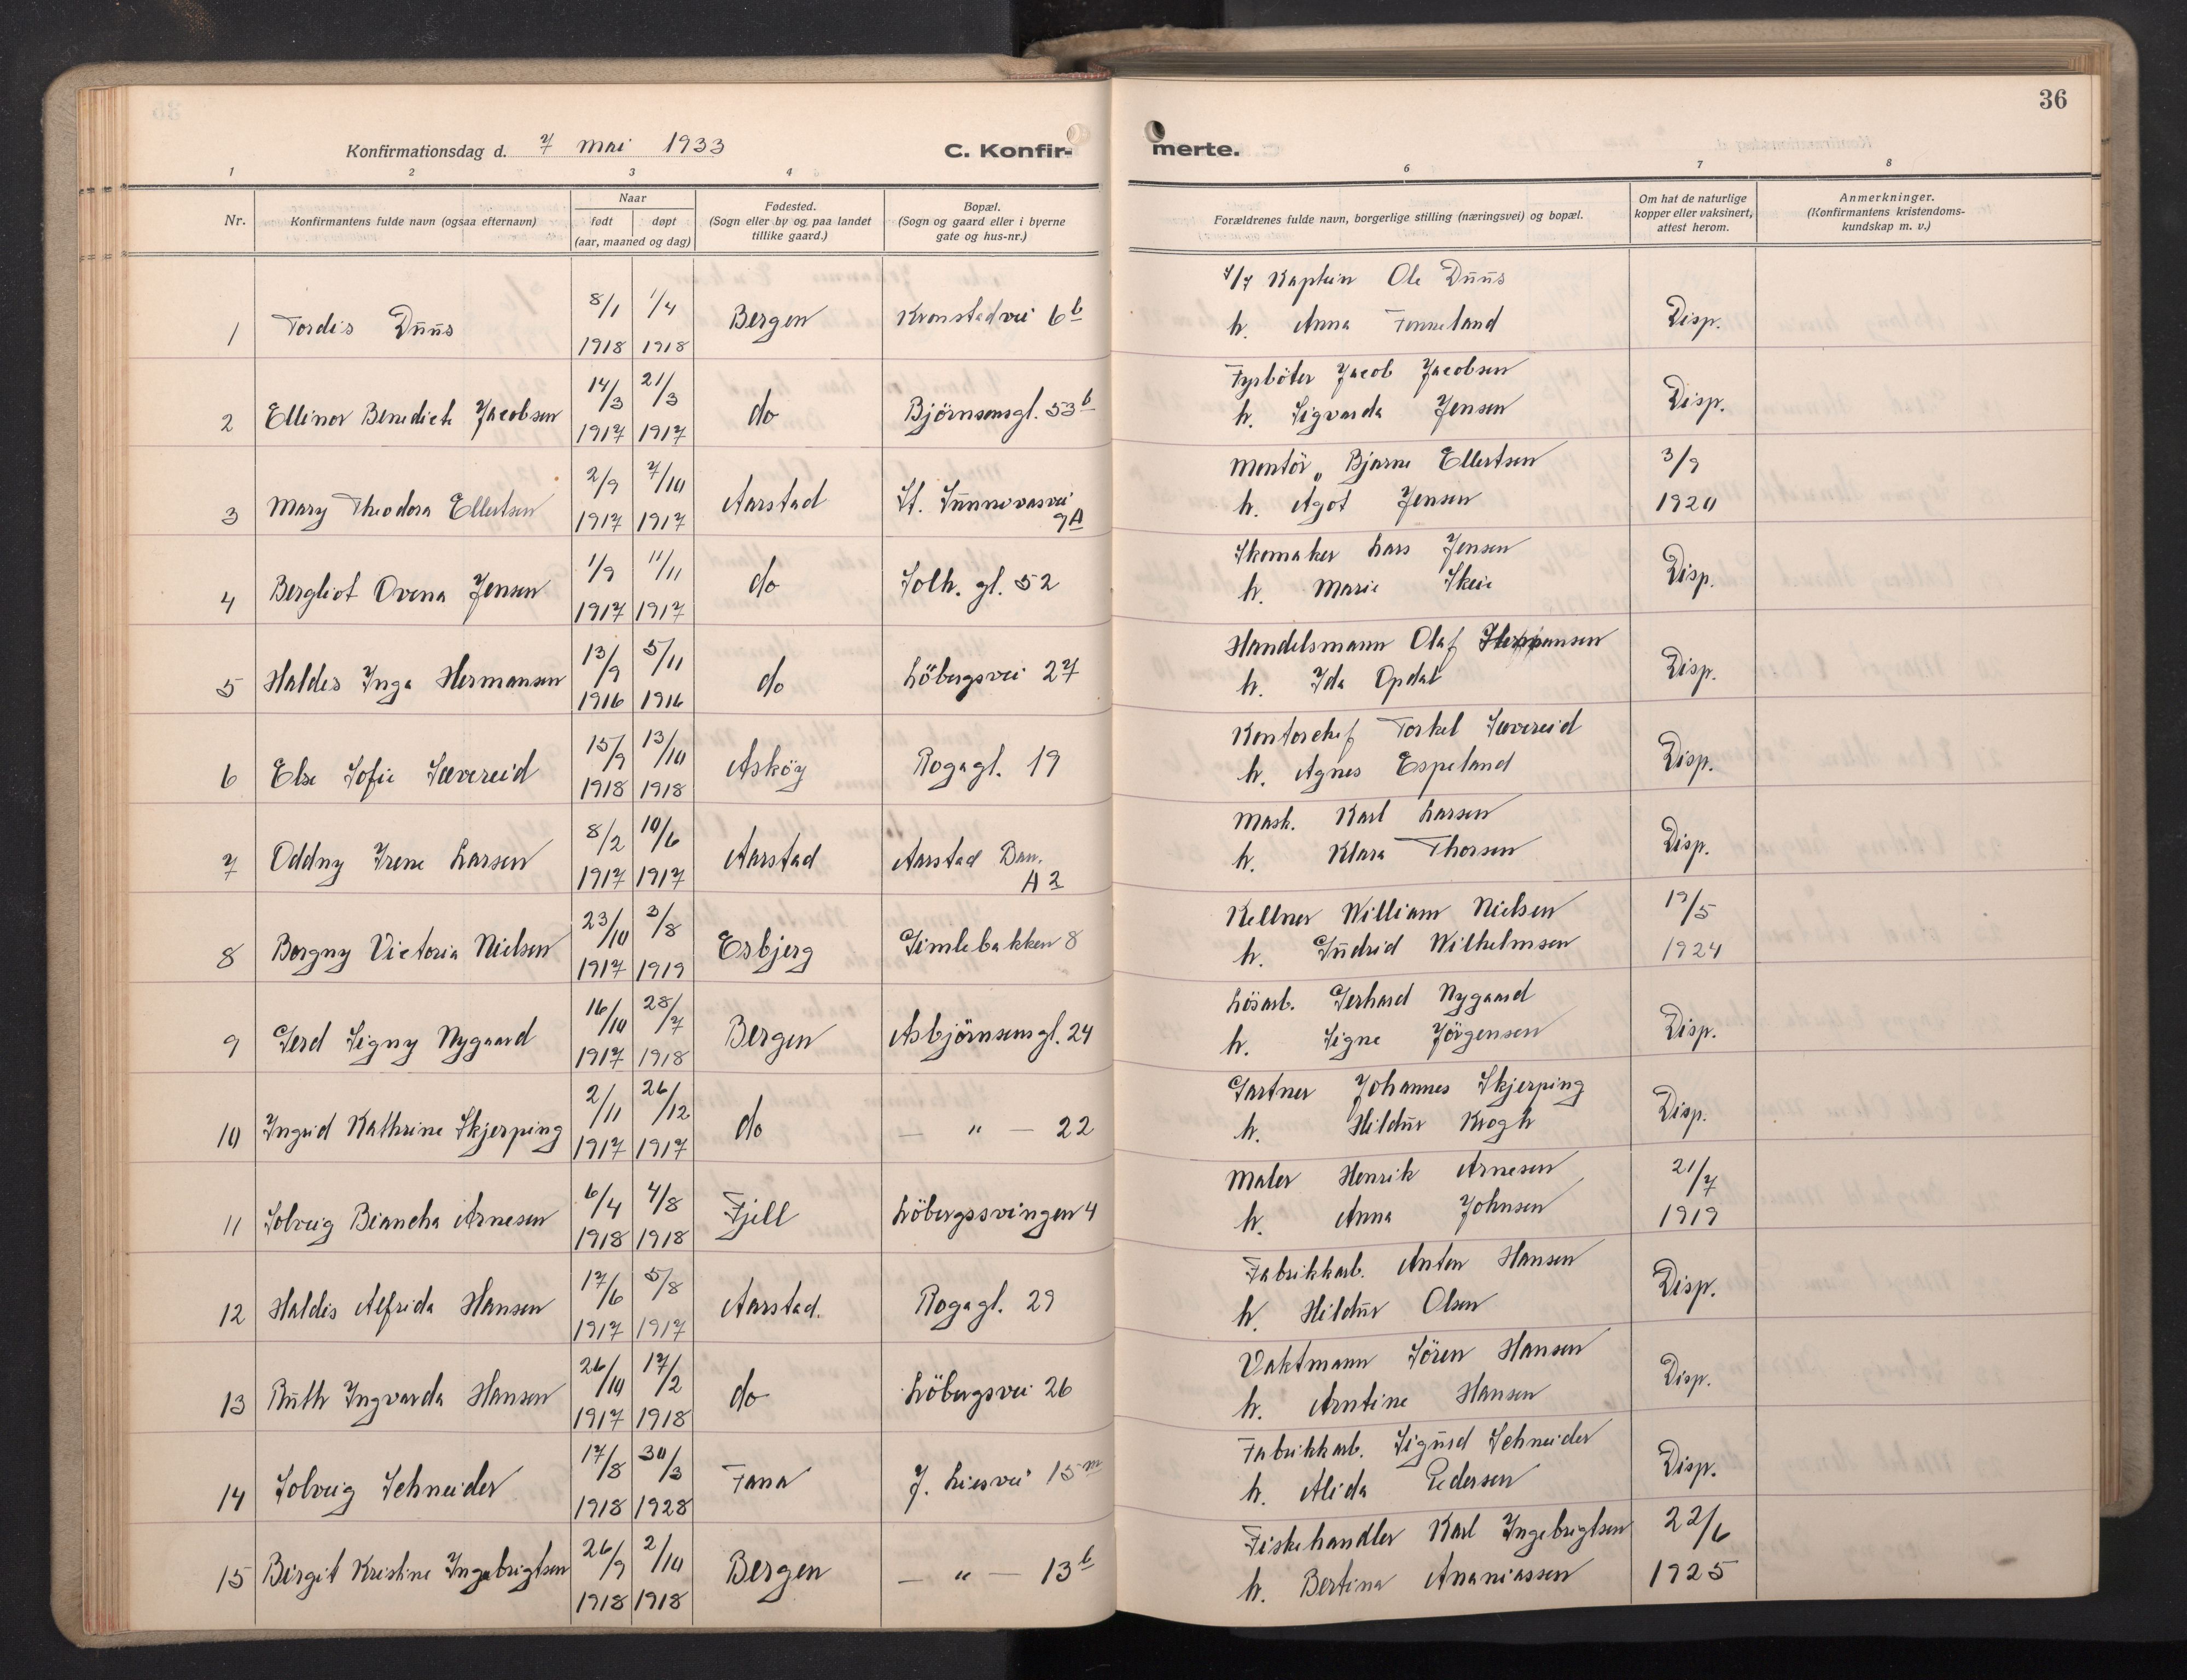 36
Konfirmationsdag d. 7 mai 1933
C. Konfir-
merte.
1 2 3 4 6 7 8
Nr.
Konfirmantens fulde navn (ogsaa efternavn)
Naar
født døpt
(aar, maaned og dag)
Fødested.
(Sogn eller by og paa landet
tillike gaard.)
Bopæl.
(Sogn og gaard eller i byerne
gate og hus-nr.)
Forældrenes fulde navn, borgerlige stilling (næringsvei) og bopæl.
Om hat de naturlige
kopper eller vaksinert,
attest herom.
Anmerkninger.
(Konfirmantens kristendoms-
kundskap m. v.)
8/1 1/4 Kaptein Ole Duus
1 Tordis Duus Bergen Kronstadvei 6b Disp.
1918 1918 h. Anna Fenneland
14/3 21/3 Fyrböter Jacob Jacobsen
2 Ellinor Benedicte Jacobsen do Björnsensgt. 53b Disp.
1917 1917 h. Sigvarda Jensen
2/9 7/10 Montör Bjarne Ellertsen 3/9
3 Mary Theodora Ellertsen Aarstad St. Sunnovasvei 9A
1917 1917 h. Agot Jensen 1920
1/9 11/11 Skomaker Lars Jensen
4 Bergliot Ovena Jensen do Solh. gt. 52 Disp.
1917 1917 h. Marie Skeie
13/9 5/11 Handelsmann Olaf Hermansen
5 Haldis Inga Hermansen do Löbergsvei 27 Disp.
1916 1916 h. Ida Opdal
15/9 13/10 Kontorchef Torkel Sævereid
6 Else Sofie Sævereid Asköy Rogagt. 19 Disp.
1918 1918 h. Agnes Espeland
8/2 10/6 Mask. Karl Larsen
7 Oddny Irene Larsen Aarstad Aarstad Bau. A 2 Disp.
1917 1917 h. Klara Thorsen
23/10 3/8 Kellner William Nielsen 19/5
8 Borgny Victoria Nielsen Esbjerg Gimlebakken 8
1917 1919 h. Gudrid Wilhelmsen 1924
16/10 28/7 Lösarb. Gerhard Nygaard
9 Gerd Signy Nygaard Bergen Asbjörnsensgt. 24 Disp.
1917 1918 h. Signe Jörgensen
2/11 26/12 Gartner Johannes Skjerping
10 Ingrid Kathrine Skjerping do — " — 22 Disp.
1917 1917 h. Hildur Krogh
6/4 4/8 Maler Henrik Arnesen 21/7
11 Solveig Biancha Arnesen Fjell Löbergssvingen 4
1918 1918 h. Anna Johnsen 1919
17/6 5/8 Fabrikkarb. Anton Hansen
12 Haldis Alfrida Hansen Aarstad. Rogagt. 29 Disp.
1917 1917 h. Hildur Olsen
26/10 17/2 Vaktmann Sören Hansen
13 Ruth Ingvarda Hansen do Löbergsvei 26 Disp.
1917 1918 h. Arntine Hansen
17/8 30/3 Fabrikkarb. Sigurd Schneider
14 Solveig Schneider Fana J. Liesvei 15m Disp.
1918 1928 h. Alida Pedersen
26/9 2/10 Fiskehandler Karl Ingebrigtsen 22/6
15 Birgit Kristine Ingebrigtsen Bergen — " — 13b
1918 1918 h. Bertina Ananiassen 1925